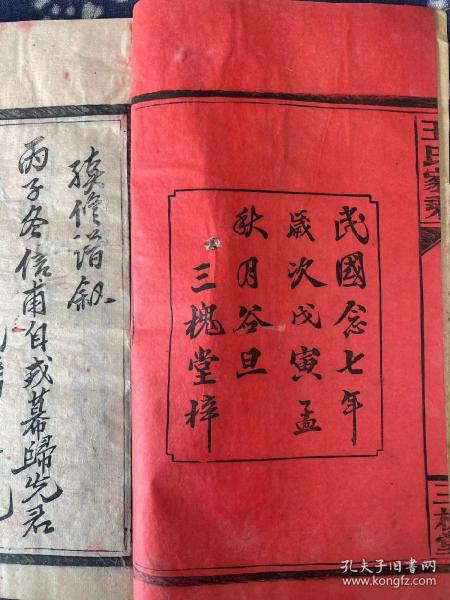 王氏家乘
三槐堂
民國念七年
歲次戊寅孟
秋月谷旦
三槐堂梓
續修譜敘
丙子冬信甫自戎幕歸先君
孔夫子旧书网
www.kongfz.com